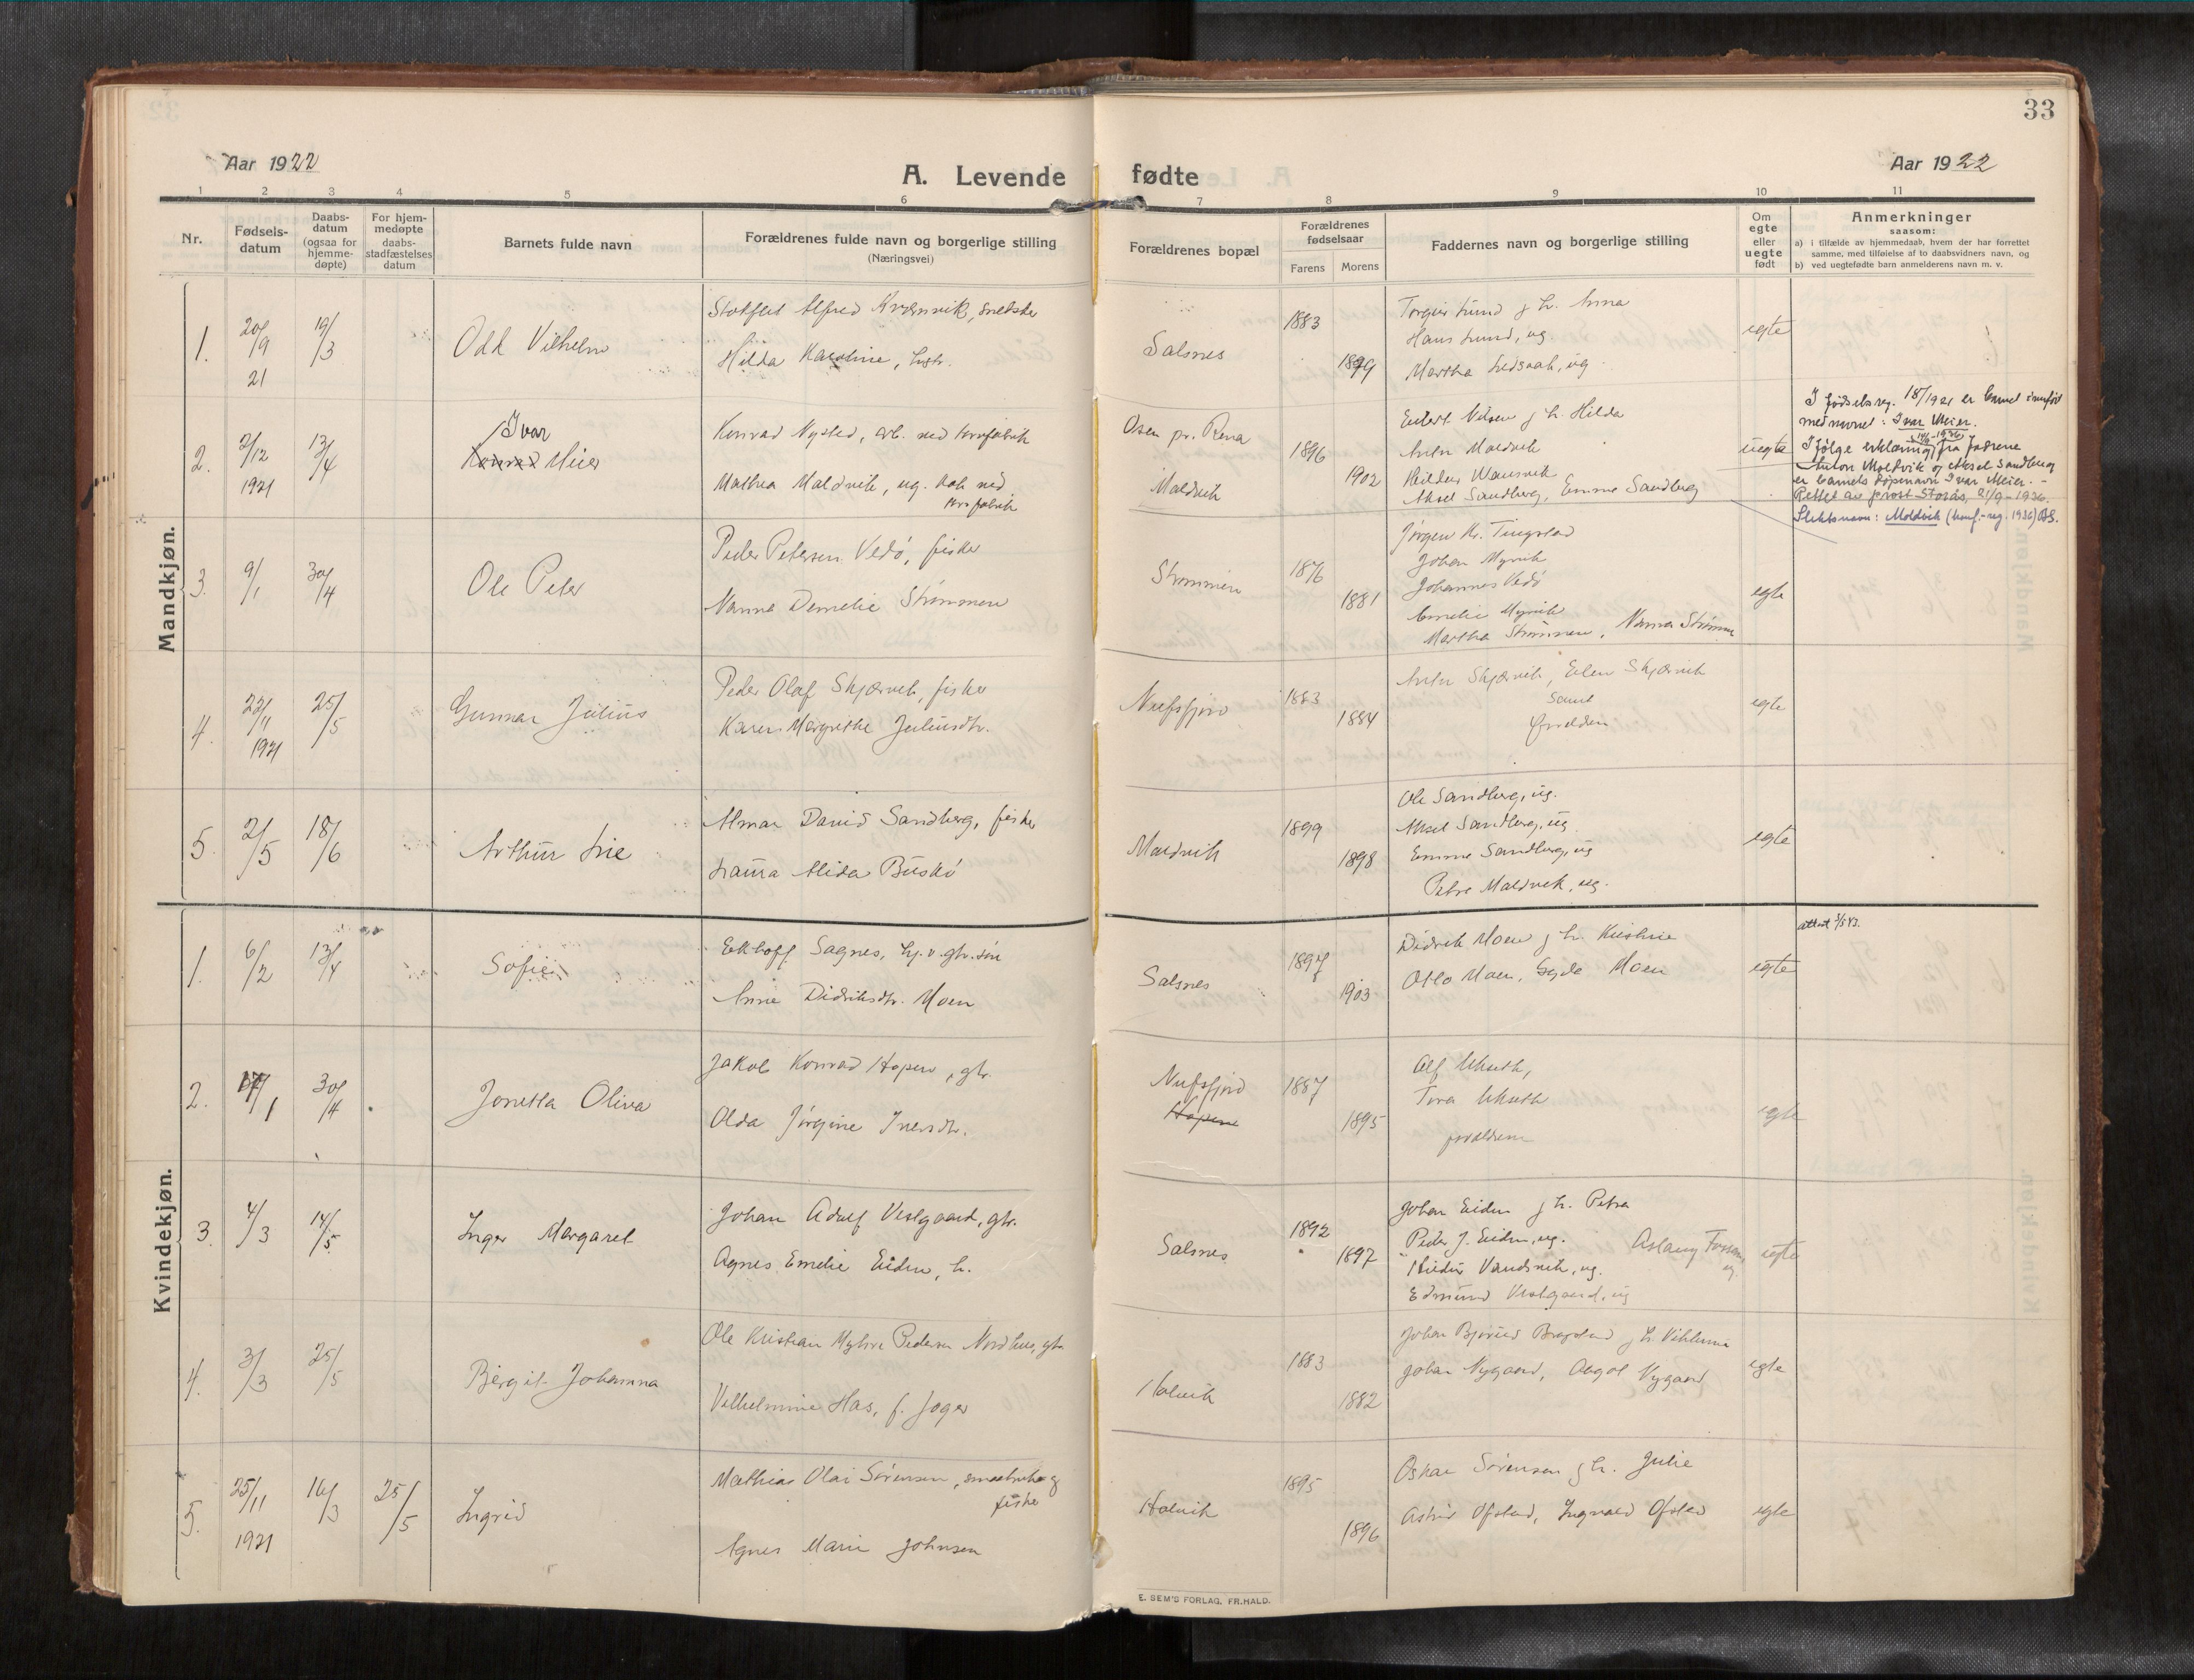 33
Aar 1922
A. Levende fødte
Aar 1922
1 2 3 4 5 6 7 8 9 10 11
Nr.
Fødsels-
datum
Daabs-
datum
(ogsaa for
hjemme-
døpte)
For hjem-
medøpte
daabs-
stadfæstelses
datum
Barnets fulde navn
Forældrenes fulde navn og borgerlige stilling
(Næringsvei)
Forældrenes bopæl
Forældrenes
fødselsaar
Farens
Morens
Faddernes navn og borgerlige stilling
Om
egte
eller
uegte
født
Anmerkninger
saasom:
a) i tilfælde av hjemmedaab, hvem der har forrettet
samme, med tilføielse af to daabsvidners navn, og
b) ved uegtefødte barn anmelderens navn m. v.
Mandkjøn.
1. 20/9 21 19/3
Odd Vilhelm
Alfred Kvernvik, snekker
Hilda Karoline, hstr.
Salsnes
1883
1899
Torgeir Lund j h. Anna
Hans Lund, ug
Martha, ug
egte
2. 2/12 1921 13/4
Ivar
Konrad Meier
Konrad Nysted, arb. ved tønnfabrik
Mathea Maldvik, ug. kok ved
tønnfabrik
Osen pr. Rena
Maldvik
1896
1902
Edert Nilsen j h. Hilda
Anton Maldvik
Aksel Sandberg, Emma Sandberg
uegte
I fødselsreg. 18/1921 er barnet innført
med navnet: Ivar Meier.
I følge erklæring 14/6-1936 fra fadrene
Anton Moldvik og Aksel Sandberg
er barnets døpenavn Ivar Meier. -
Rettet av prost Storås, 21/9-1936.
Slektsnavn: Moldvik (konf.-reg. 1936) AS.
3. 9/1 30/4
Ole Peter
Peder Petersen Vedø, fisker
Nanna Strømmen
Strømmen
1876
1881
Jørgen Kr. Tingstad
Johan Myrvik
Johannes Vedø
Amelie Myrvik
Martha Strømmen, Nanna Strømmen
egte
4. 22/11 1921 25/5
Gunnar Julius
Peder Olaf Skjærvik, fisker
Karen Margrethe Juliusdtr.
1883
1884
Anton Skjærvik, Ellen Skjærvik
samt
forældren
egte
5. 2/5 18/6
Arthur
Almar David Sandberg, fisker
Laura Alida Buskø
Maldvik
1899
1898
Ole Sandberg, ug.
Aksel Sandberg, ug
Emma Sandberg, ug
Petra Maldvik, ug.
egte
Kvindekjøn.
1. 6/2 13/4
Sofie
Ekhoff Sagnes, hj. v. gbr. søn
Anna Didriksdtr. Moen
Salsnes
1897
1903
Didrik Moen j h. Kristine
Otto Moen, Moen
egte
attest 3/5 43.
2. 17/1 30/4
Jonetta Oliva
Jakob Konrad Hopen, gbr.
Olda Jørgine Iversdtr.
Hopen
1887
1895
Alf
Tora
forældrene
egte
3. 4/3 14/5
Inger Margaret
Johan Adolf Vestgaard, gbr.
Agnes Emelie Eiden, h.
Salsnes
1892
1897
Johan Eiden j h. Petra
Peder J. Eiden, ug. Aslaug
Vandsvik, ug.
Edmund Vestgaard, ug
egte
4. 3/3 25/5
Bergit Johanna
Ole Kristian Pedersen Nordhus, gbr.
Vilhelmine Has, f. Joger
Holvik
1883
1882
Johan j h.
Johan Nygaard, Aagot Nygaard
egte
5. 25/11 1921 16/3 25/5
Ingrid
Mathias Olai Sørensen, smaabruker og
fisker
Agnes Marie Johnsen
Holvik
1895
1896
Oskar Sørensen j h. Julie
Astrid Ofstad, Ingvald Ofstad
egte
E. SEM'S FORLAG, FR.HALD.